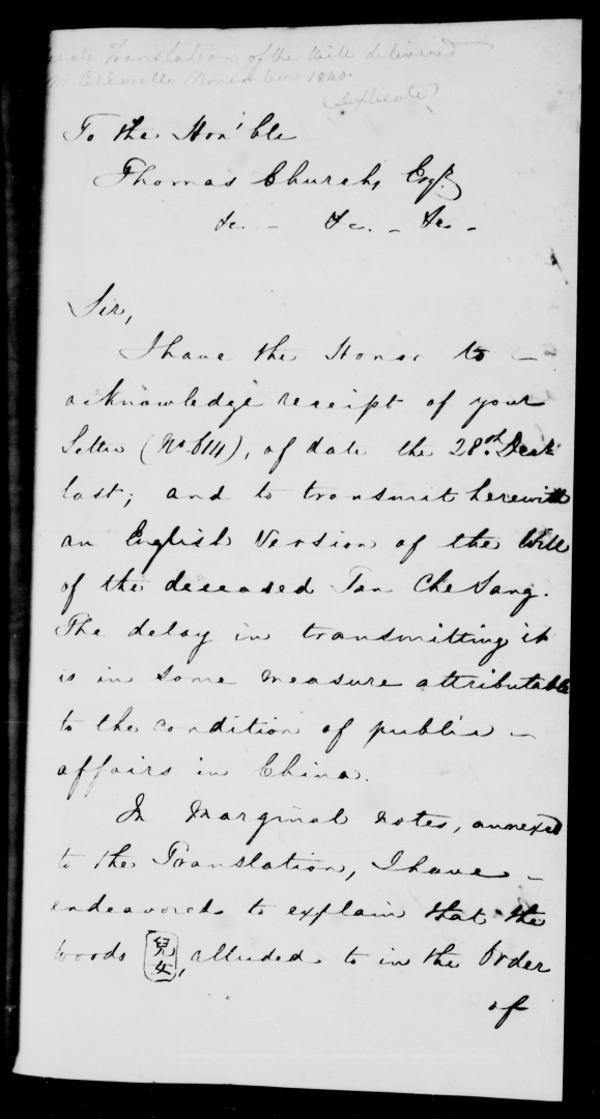 Translation of the Will delivered
November 1840.
(Duplicate)
To the Hon'ble
Thomas Church, Esqr.
&c. - &c. - &c. -
Sir,
I have the Honor to -
acknowledge receipt of your
Letter (No 614), of date the 28th Decr
last; and to transmit herewith
an English Version of the Will
of the deceased Tan Che Sang.
The delay in transmitting it
is in some measure attributable
to the condition of public -
affairs in China.
In Marginal notes, annexed
to the Translation, I have -
endeavored to explain that the
words 兒女, alluded to in the Order
of